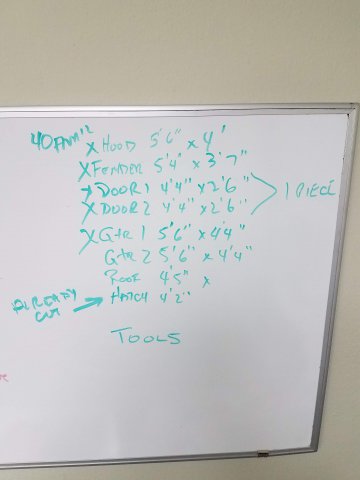 X HOOD 5'6" x 4'
X FENDER 5'4" x 3'7"
X DOOR 1 4'4" x 2'6"
X DOOR 2 4'4" x 2'6"
1 PIECE
X Qtr 1 5'6" x 4'4"
Qtr 2 5'6" x 4'4"
ROOF 4'5" x
ALREADY CUT
HATCH 4'2"
TOOLS